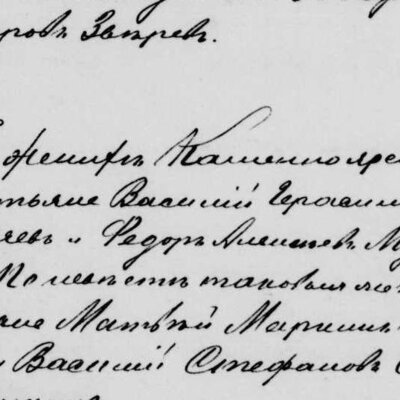 ровъ Звѣревъ.
женихѣ Каменнояр
тьяне Василій Герасим
яевъ и Ѳедоръ Алексѣевъ М
По невѣстѣ таковыя же
яне Матвѣй Маркинъ
и Василій Стефановъ С